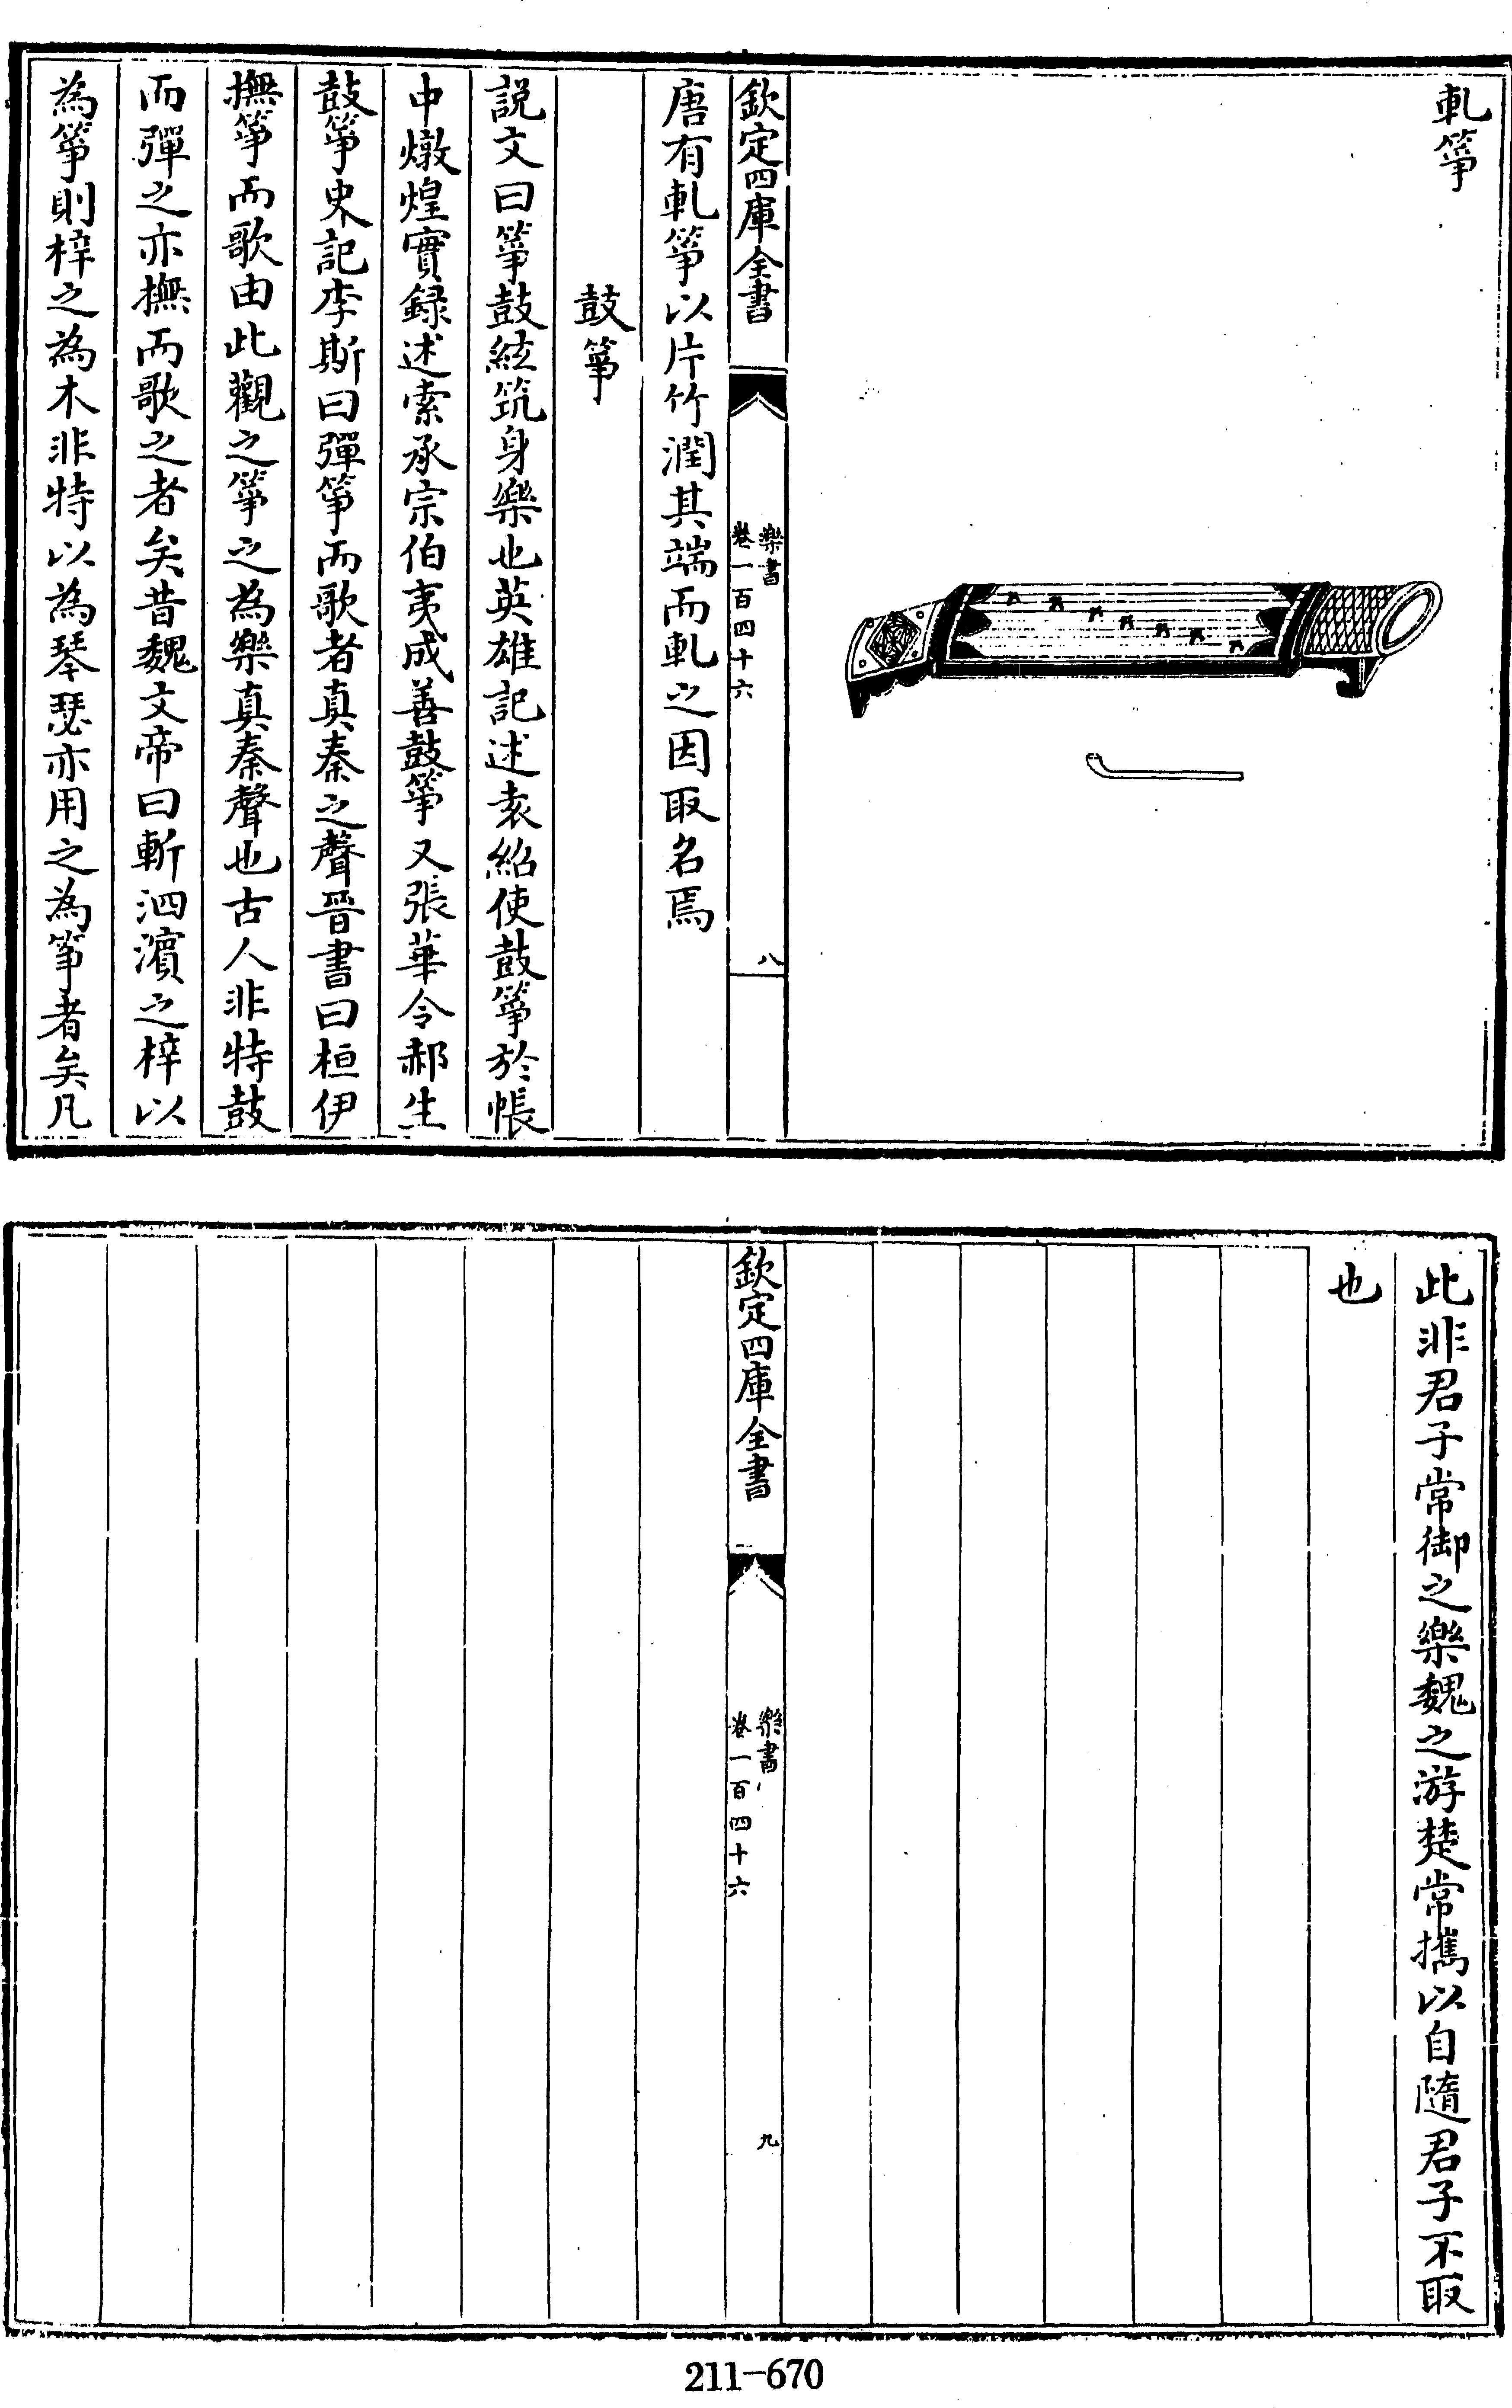 軋箏
欽定四庫全書
樂書
卷一百四十六
八
唐有軋箏以片竹潤其端而軋之因取名焉
鼓箏
説文曰箏鼓絃筑身樂也英雄記述袁紹使鼓箏於帳
中燉煌實録述索承宗伯夷成善鼓箏又張華令郝生
鼓箏史記李斯曰彈箏而歌者真秦之聲晉書曰桓伊
撫箏而歌由此觀之箏之為樂真秦聲也古人非特鼓
而彈之亦撫而歌之者矣昔魏文帝曰斬泗濵之梓以
為箏則梓之為木非特以為琴瑟亦用之為箏者矣凡
此非君子常御之樂魏之游楚常攜以自隨君子不取
也
欽定四庫全書
樂書
卷一百四十六
九
211-670